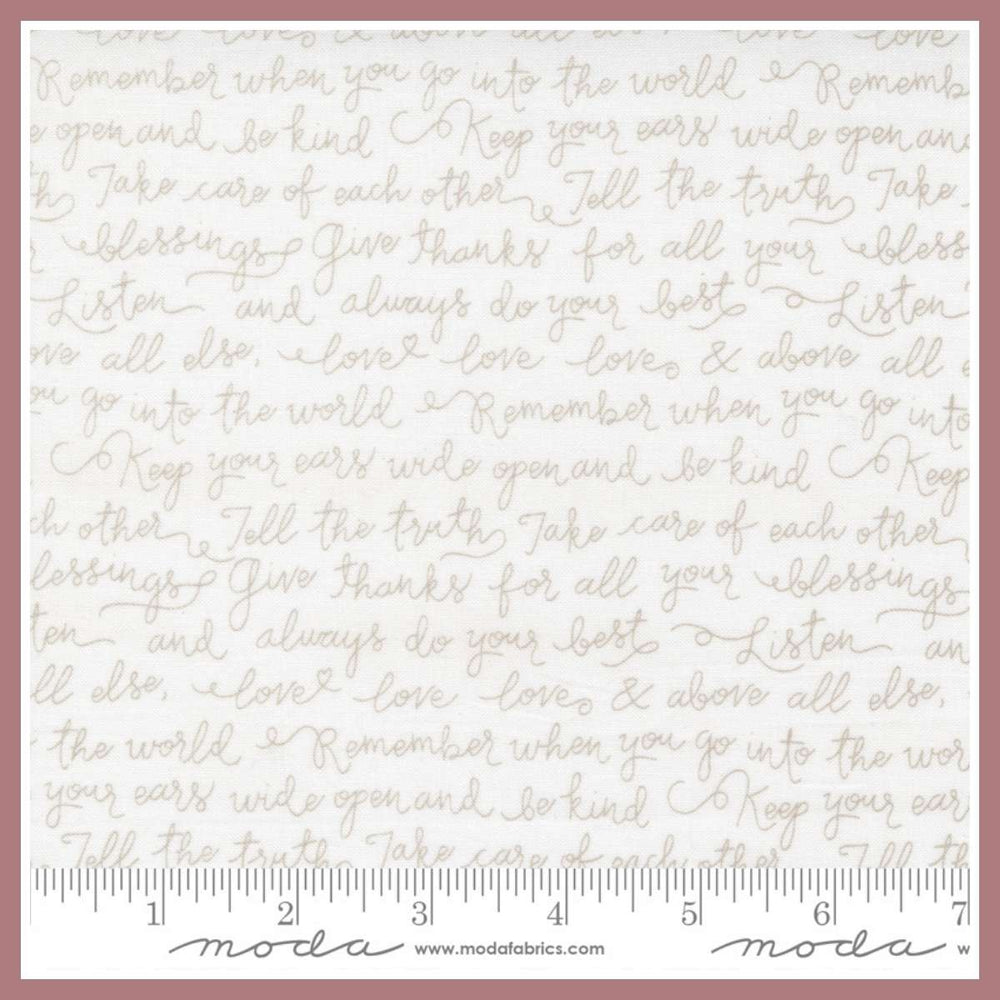 love loves & above all else, love
Remember when you go into the world Rememb
e open and be kind Keep your ears wide open and
th Take care of each other Tell the truth Take
r blessings Give thanks for all your bless
Listen and always do your best Listen
ove all else, love love loves & above all e
ou go into the world Remember when you go into
Keep your ears wide open and be kind Keep
ch other Tell the truth Take care of each other
lessings Give thanks for all your blessings
ten and always do your best Listen an
ll else, love love loves & above all else,
the world Remember when you go into the wor
your ears wide open and be kind Keep your ear
Tell the truth Take care of each other Tell th
1 2 3 4 5 6 7
moda www.modafabrics.com moda w